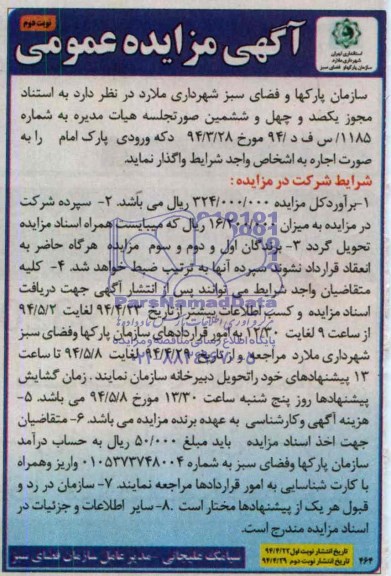 نوبت دوم
آگهی مزایده عمومی
استانداری تهران
شهرداری ملارد
سازمان پارکها و فضای سبز
سازمان پارکها و فضای سبز شهرداری ملارد در نظر دارد به استناد
مجوز یکصد و چهل و ششمین صورتجلسه هیات مدیره به شماره
۱۱۸۵/س ف د /۹۴ مورخ ۹۴/۳/۲۸ دکه ورودی پارک امام را به
صورت اجاره به اشخاص واجد شرایط واگذار نماید.
شرایط شرکت در مزایده :
۱-برآوردکل مزایده ۳۲۴/۰۰۰/۰۰۰ ریال می باشد. ۲- سپرده شرکت
در مزایده به میزان ریال که میبایست همراه اسناد مزایده
تحویل گردد ۳- برندگان اول و دوم و سوم مزایده هرگاه حاضر به
انعقاد قرارداد نشوند سپرده آنها به ترتیب ضبط خواهد شد. ۴- کلیه
متقاضیان واجد شرایط می توانند پس از انتشار آگهی جهت دریافت
اسناد مزایده و کسب اطلاعات بیشتر از تاریخ ۹۴/۴/۲۳ لغایت ۹۴/۵/۲
از ساعت ۹ لغایت ۱۲/۳۰ به امور قراردادهای سازمان پارکها وفضای سبز
شهرداری ملارد مراجعه و از تاریخ ۹۴/۴/۲۹ لغایت ۹۴/۵/۸ تا ساعت
۱۳ پیشنهادهای خود راتحویل دبیرخانه سازمان نمایند . زمان گشایش
پیشنهادها روز پنج شنبه ساعت ۱۳/۳۰ مورخ ۹۴/۵/۸ می باشد. ۵-
هزینه آگهی وکارشناسی به عهده برنده مزایده می باشد. ۶- متقاضیان
جهت اخذ اسناد مزایده باید مبلغ ۵۰/۰۰۰ ریال به حساب درآمد
سازمان پارکها وفضای سبز به شماره ۰۱۰۵۳۷۳۷۴۸۰۰۴ واریز وهمراه
با کارت شناسایی به امور قراردادها مراجعه نمایند. ۷- سازمان در رد و
قبول هر یک از پیشنهادها مختار است .۸- سایر اطلاعات و جزئیات در
اسناد مزایده مندرج است.
ParsNamadData
پایگاه اطلاع رسانی مناقصه و مزایده
تاریخ انتشار نوبت اول:۹۴/۴/۲۲
تاریخ انتشار نوبت دوم: ۹۴/۴/۲۹
سیامک علیجانی - مدیر عامل سازمان فضای سبز
۴۶۴